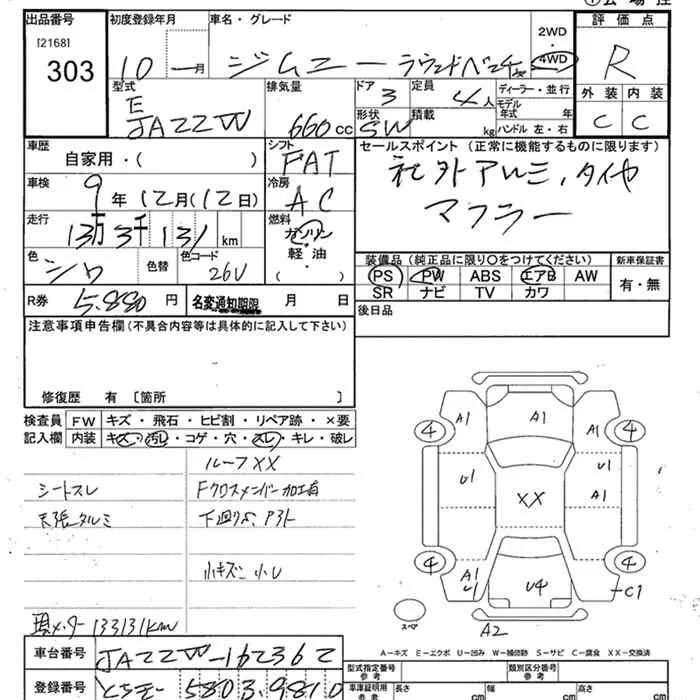 出品番号 初度登録年月 車名・グレード 評価点
[2168]
303
10 — 月 ジムニー 2WD 4WD R
型式 排気量 ドア 定員 ディーラー・並行 外装 内装
E JAZZW 660cc 3 4人 モデル年式 年 C C
形状 積載 SW kg ハンドル 左・右
車歴 シフト セールスポイント (正常に機能するものに限ります)
自家用・( ) FAT 社外アルミ、タイヤ
車検 冷房 マフラー
9年12月(12日) AC
走行 燃料
13万3千131km ガソリン
軽・油
( )
装備品 (純正品に限り〇をつけてください) 新車保証書
色 色替 色コード PS PW ABS エアB AW 有・無
シロ 26U SR ナビ TV カワ
R券 5.880円 名変通知期限 月 日 後日品
注意事項申告欄(不具合内容等は具体的に記入して下さい)
修復歴 有 [箇所 ]
検査員 FW キズ・飛石・ヒビ割・リペア跡・×要
記入欄 内装 キズ・汚レ・コゲ・穴・スレ・キレ・破レ
ルーフXX
シートスレ Fクロスメンバー加工有
天張タルミ 下廻りS、
小キズ 小U
現メーター133131km
A1 A1 A1
4 4
U1 XX U1
A1
4 4
A1 U1 U4 C1
スペア A2
A−キズ E−エクボ U−凹み W−補修跡 S−サビ C−腐食 XX−交換済
車台番号 JAZZW-162362 型式指定番号 参考 類別区分番号 参考
登録番号 車庫証明用 参考 長さ 幅 高さ